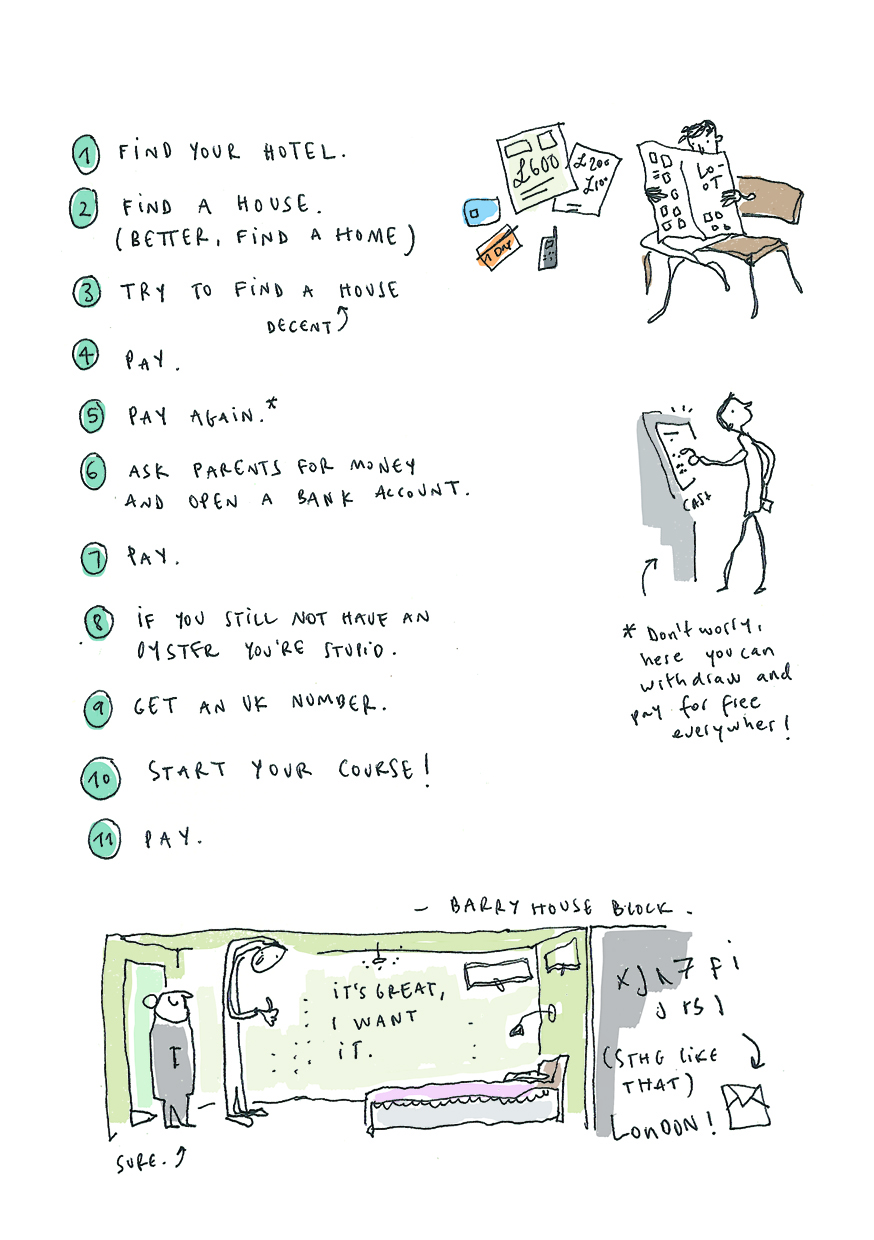 1 FIND YOUR HOTEL.
2 FIND A HOUSE.
(BETTER, FIND A HOME)
3 TRY TO FIND A HOUSE
DECENT
4 PAY.
5 PAY AGAIN.*
6 ASK PARENTS FOR MONEY
AND OPEN A BANK ACCOUNT.
7 PAY.
8 IF YOU STILL NOT HAVE AN
OYSTER YOU'RE STUPID.
9 GET AN UK NUMBER.
10 START YOUR COURSE!
11 PAY.
£600
£200
£100
LO-
OT
CASH
* Don't worry,
here you can
withdraw and
pay for free
everywher!
– BARRY HOUSE BLOCK.
IT'S GREAT,
I WANT
IT.
SURE.
(STHG LIKE
THAT)
LONDON!